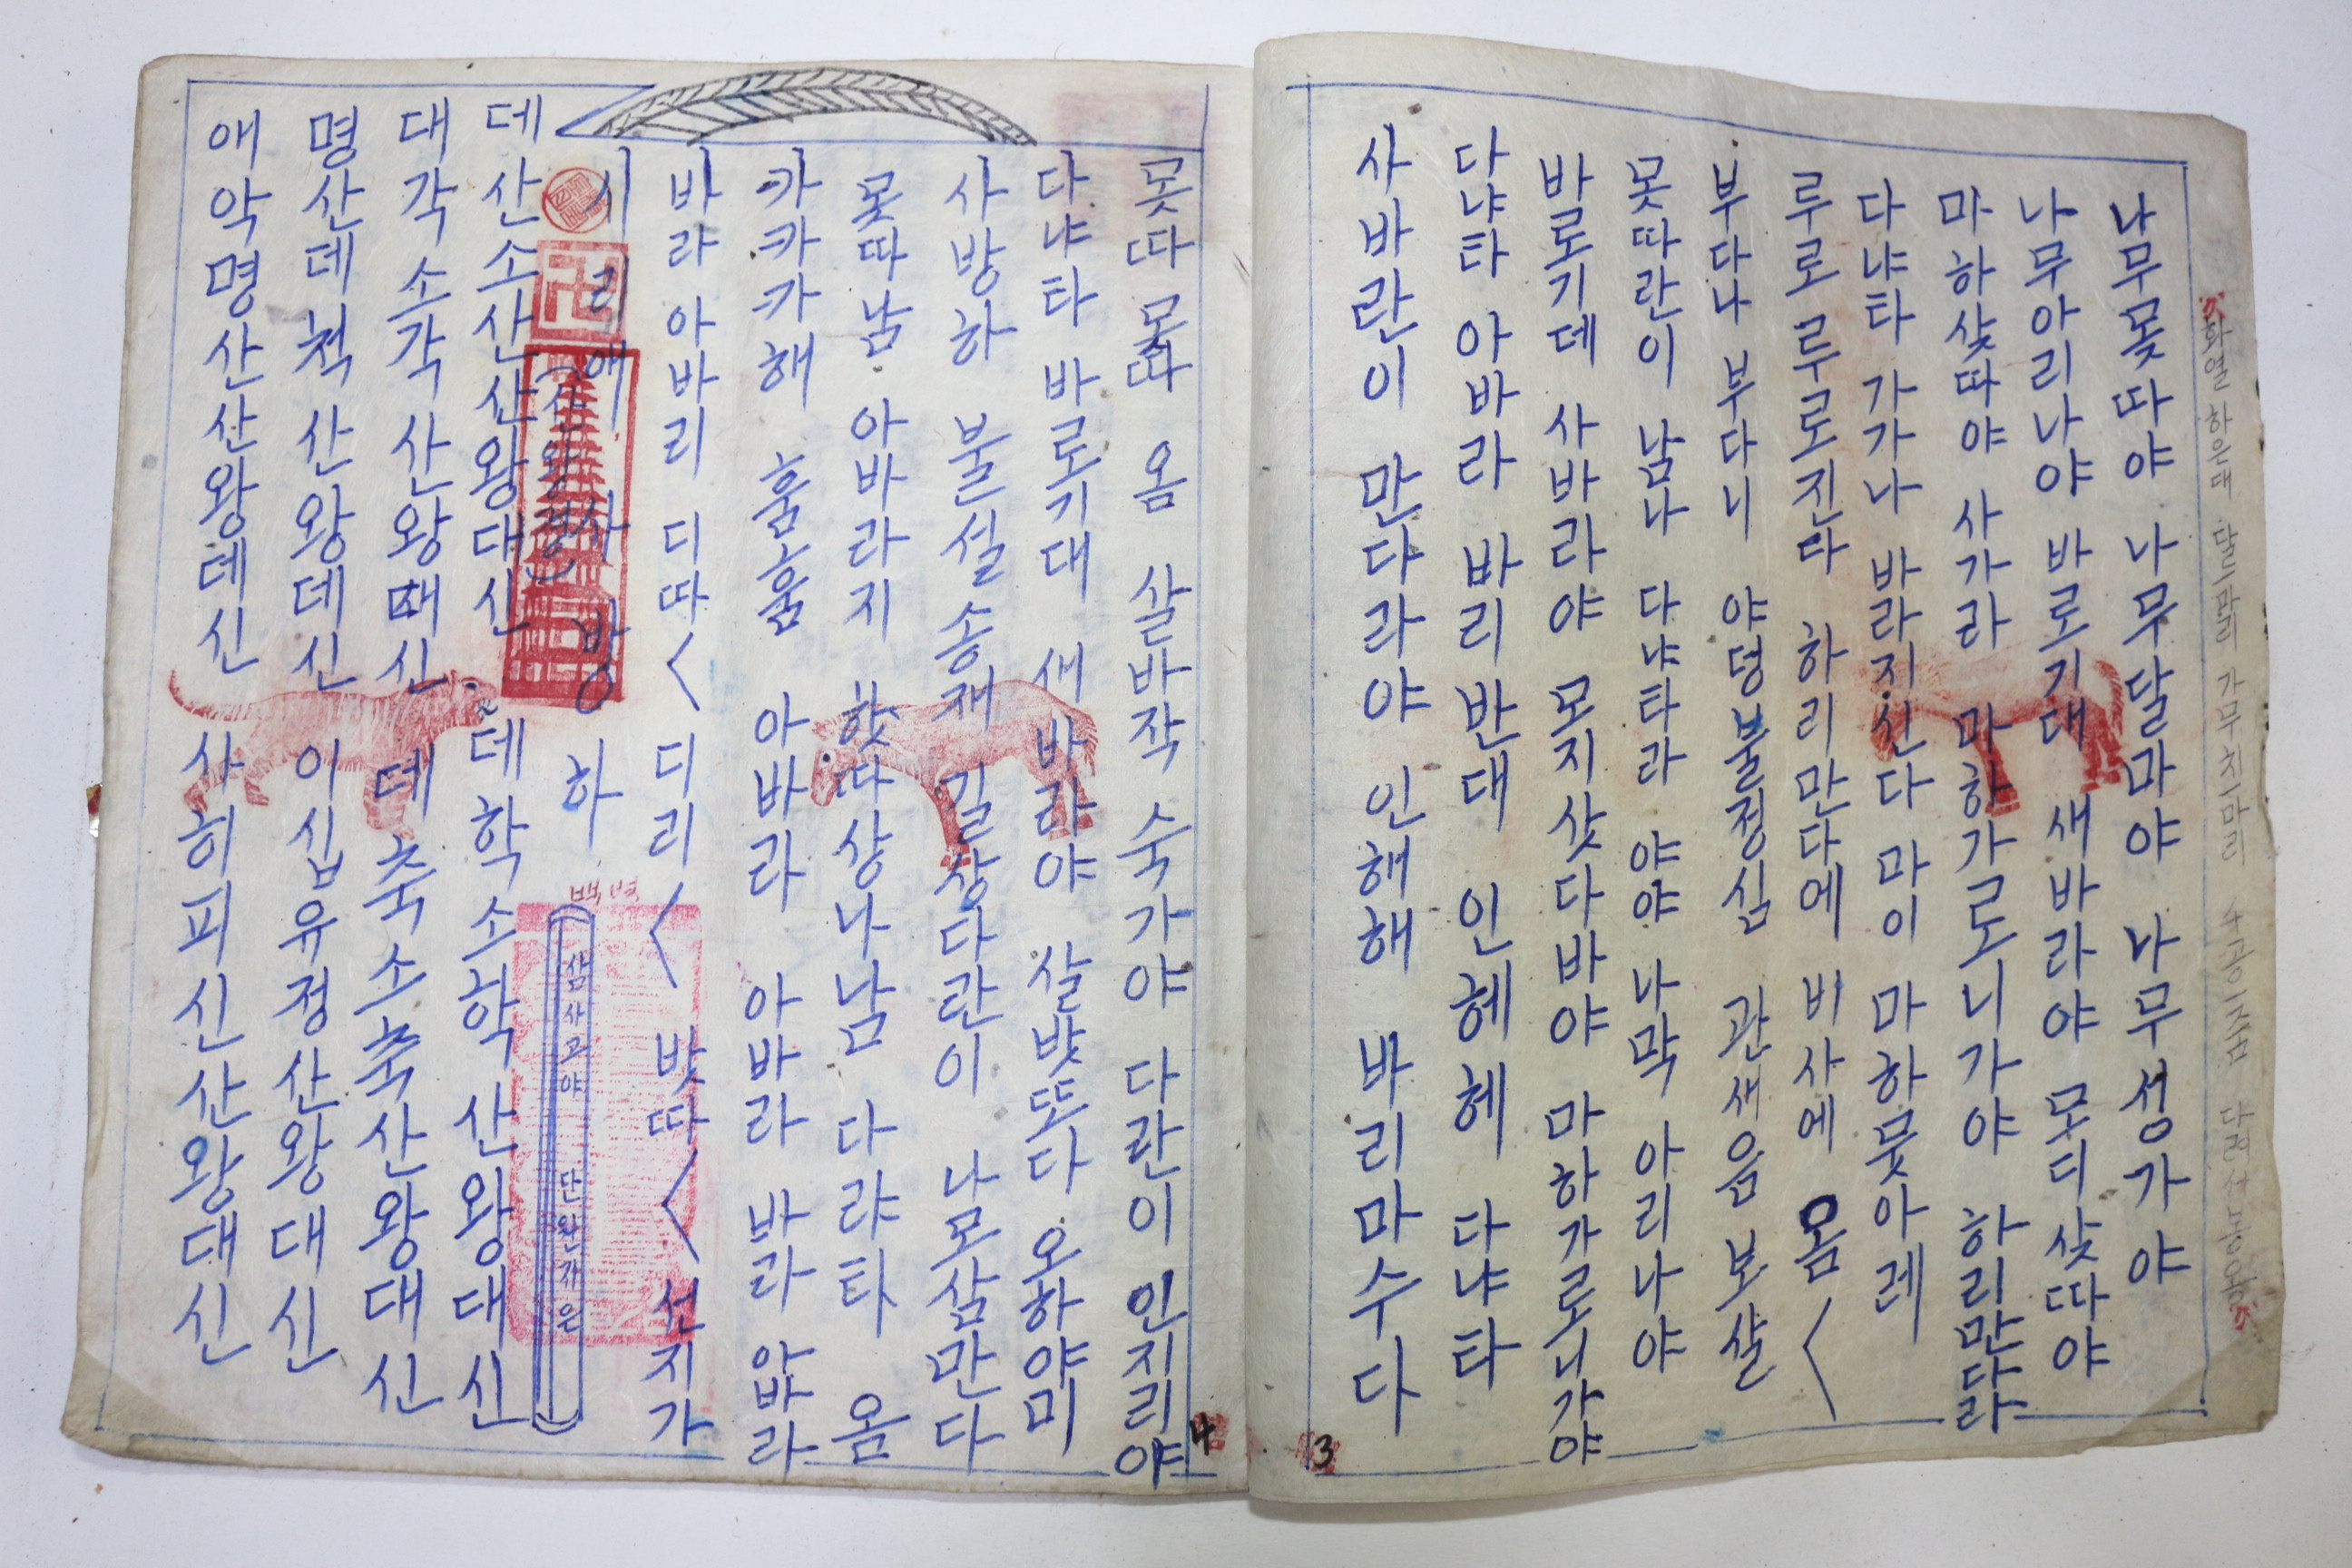 나무못따야 나무달마야 나무성가야
나무아리나야 바로기대 새바라야 모디삿따야
마하삿따야 사가라 마하가로니가야 하리만다라
다냐타 가가나 바라지신다 마이 마하뭇아레
루로루로진다 하리만다에 비사에 옴〈
부다나 부다니 야덩불정심 관새음 보살
못따란이 남나 다냐타라 야야 나막 아리나야
바로기데 사바라야 모지삿다바야 마하가로니가야
다냐타 아바라 바리반대 인혜혜 다냐타
사바란이 만다라야 인해해 바리마수다
못따 못따 옴 살바작 숙가야 다란이 인지리야
다냐타 바로기대 새바라야 살밧또다 오하야미
사방하 불설송재 길상다란이 나모삼만다
못따남 아바라지 핫다상나남 다랴타 옴
카카카해 훔훔 아바라 아바라 바라 아바라
바라아바리 디따〈 디리〈 밧따〈 선지가
시리에 사방하
(산왕경)
백번
삼사고야 단완개은
데산소산산왕대신 데학소학산왕대신
대각소각산왕대신 데축소축산왕대신
명산데척산왕데신 이십유정산왕대신
애악명산산왕데신 사히피신산왕대신
4
3